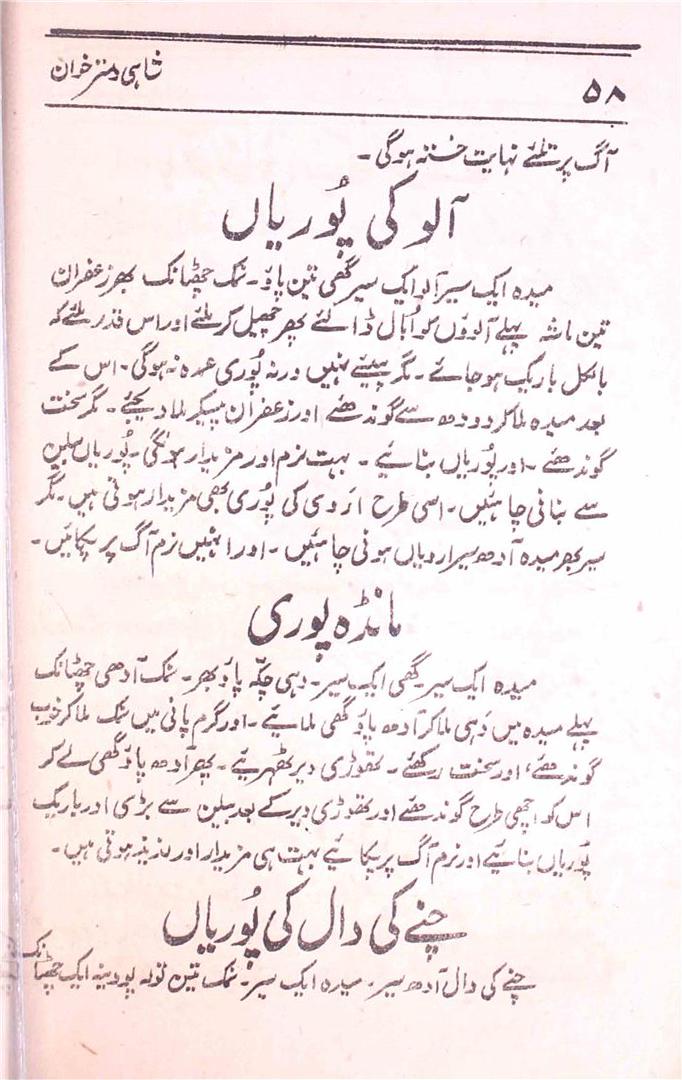 ۵۸
شاہی دسترخوان
آگ پر تلئے نہایت خستہ ہوگی۔
آلو کی پُوریاں
میدہ ایک سیر آلو ایک سیر گھی تین پاؤ۔ نمک چھٹانک بھر زعفران
تین ماشہ پہلے آلوؤں کو اُبال ڈالئے پھر چھیل کر ملئے اور اس قدر ملئے کہ
بالکل باریک ہو جائے۔ مگر پیسئے نہیں ورنہ پُوری عمدہ نہ ہوگی۔ اس کے
بعد میدہ ملا کر دودھ سے گوندھئے اور زعفران پیسکر ملا دیجئے۔ مگر سخت
گوندھئے۔ اور پُوریاں بنائیے۔ بہت نرم اور مزیدار ہونگی۔ پُوریاں بیلن
سے بنانی چاہئیں۔ اسی طرح اروی کی پُوری بھی مزیدار ہوتی ہیں۔ مگر
سیر بھر میدہ آدھ سیر ارویاں ہونی چاہئیں۔ اور انہیں نرم آگ پر پکائیں۔
مانڈہ پوری
میدہ ایک سیر۔ گھی ایک سیر۔ دہی چکّہ پاؤ بھر۔ نمک آدھی چھٹانک
پہلے میدہ میں دَہی ملا کر آدھ پاؤ گھی ملائیے۔ اور گرم پانی میں نمک ملا کر خوب
گوندھئے، اور سخت رکھئے۔ تھوڑی دیر ٹھہریئے۔ پھر آدھ پاؤ گھی لے کر
اس کو اچھی طرح گوندھئے اور تھوڑی دیر کے بعد بیلن سے بڑی اور باریک
پوریاں بنائیے اور نرم آگ پر پکائیے بہت ہی مزیدار اور لذیذ ہوتی ہیں۔
چنے کی دال کی پُوریاں
چنے کی دال آدھ سیر۔ میدہ ایک سیر۔ نمک تین تولہ پودینہ ایک چھٹانک